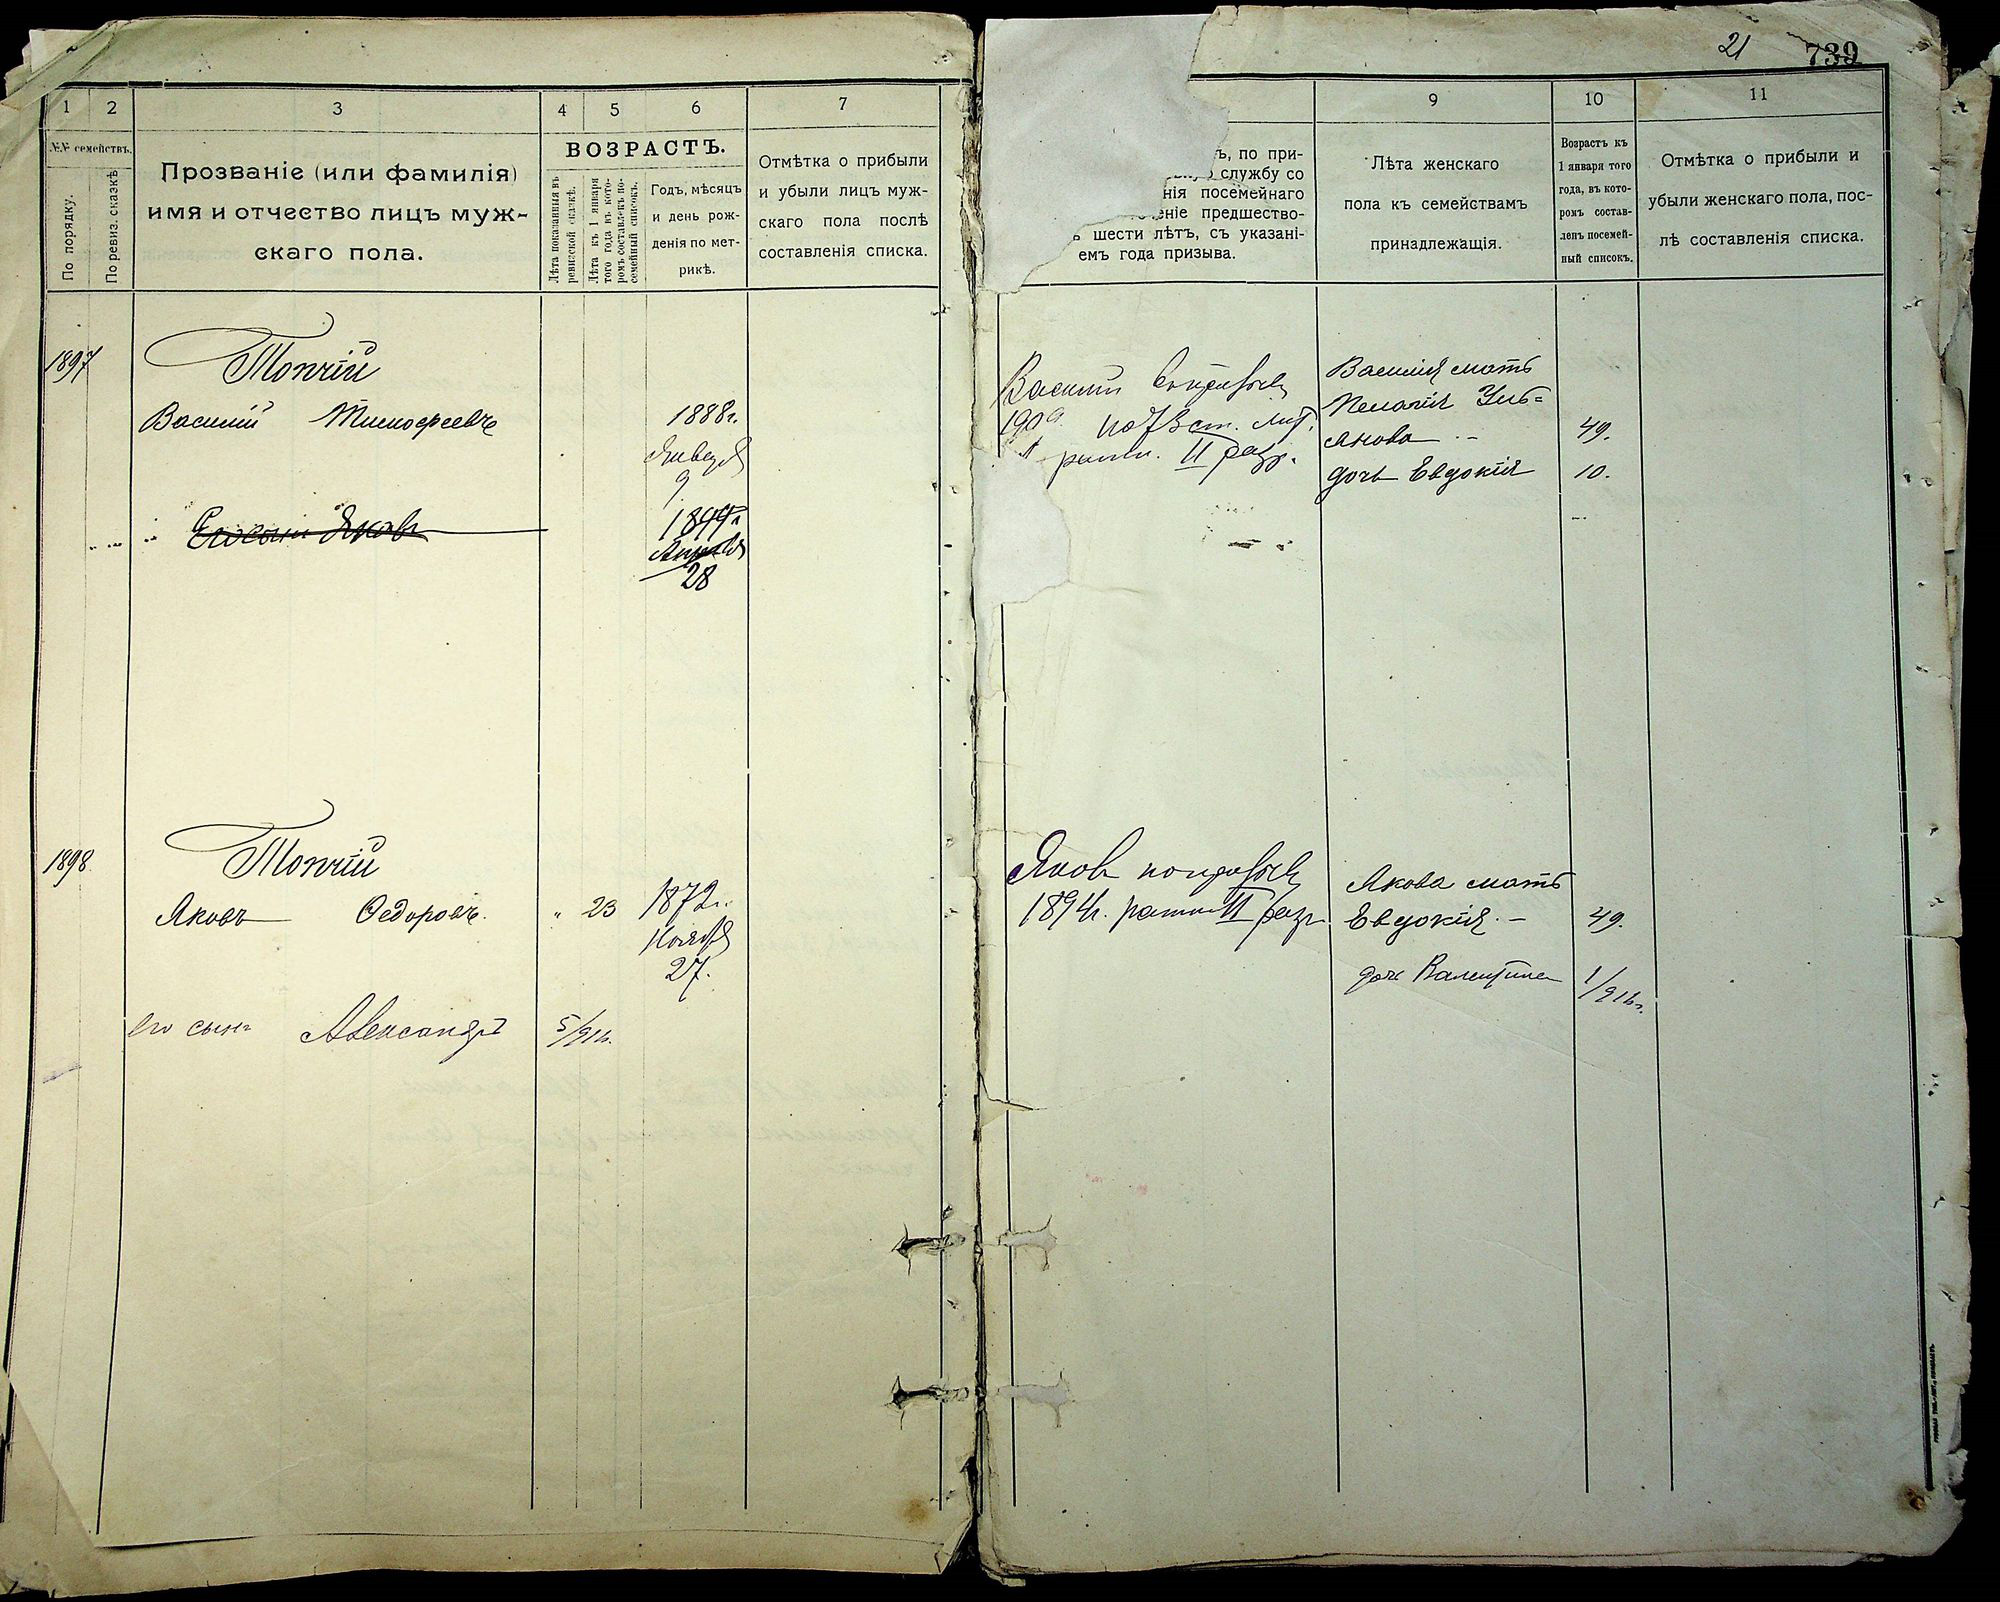 21
739
1 2 3 4 5 6 7
№№ семействъ.
По порядку.
По ревиз. сказкѣ
Прозваніе (или фамилія)
имя и отчество лицъ муж-
скаго пола.
ВОЗРАСТЪ.
Лѣта показанныя въ
ревизской сказкѣ.
Лѣта къ 1 января
того года въ кото-
ромъ составлекъ по-
семейный списокъ.
Годъ, мѣсяцъ
и день рож-
денія по мет-
рикѣ.
Отмѣтка о прибыли
и убыли лицъ муж-
скаго пола послѣ
составленія списка.
9 10 11
ъ, по при-
службу со
нія посемейнаго
еніе предшество-
шести лѣтъ, съ указані-
емъ года призыва.
Лѣта женскаго
пола къ семействамъ
принадлежащія.
Возрастъ къ
1 января того
года, въ кото-
ромъ состав-
ленъ посемей-
ный списокъ.
Отмѣтка о прибыли и
убыли женскаго пола, пос-
лѣ составленія списка.
1897
Топчій
Василій Тимофеевъ
1888г.
Января
9
Его сынъ Яковъ
Апрѣля
28
Василій
1909 по 73 ст.
ратн. II разр.
Василія мать
Пелагія Уль=
янова 49.
дочь Евдокія 10.
1898
Топчій
Яковъ Ѳедоровъ. " 23
1872г.
Ноября
27.
его сынъ Александръ 5/91
Яковъ
1894г. ратн II разр
Якова мать
Евдокія 49.
дочь Валентина 1/916г.